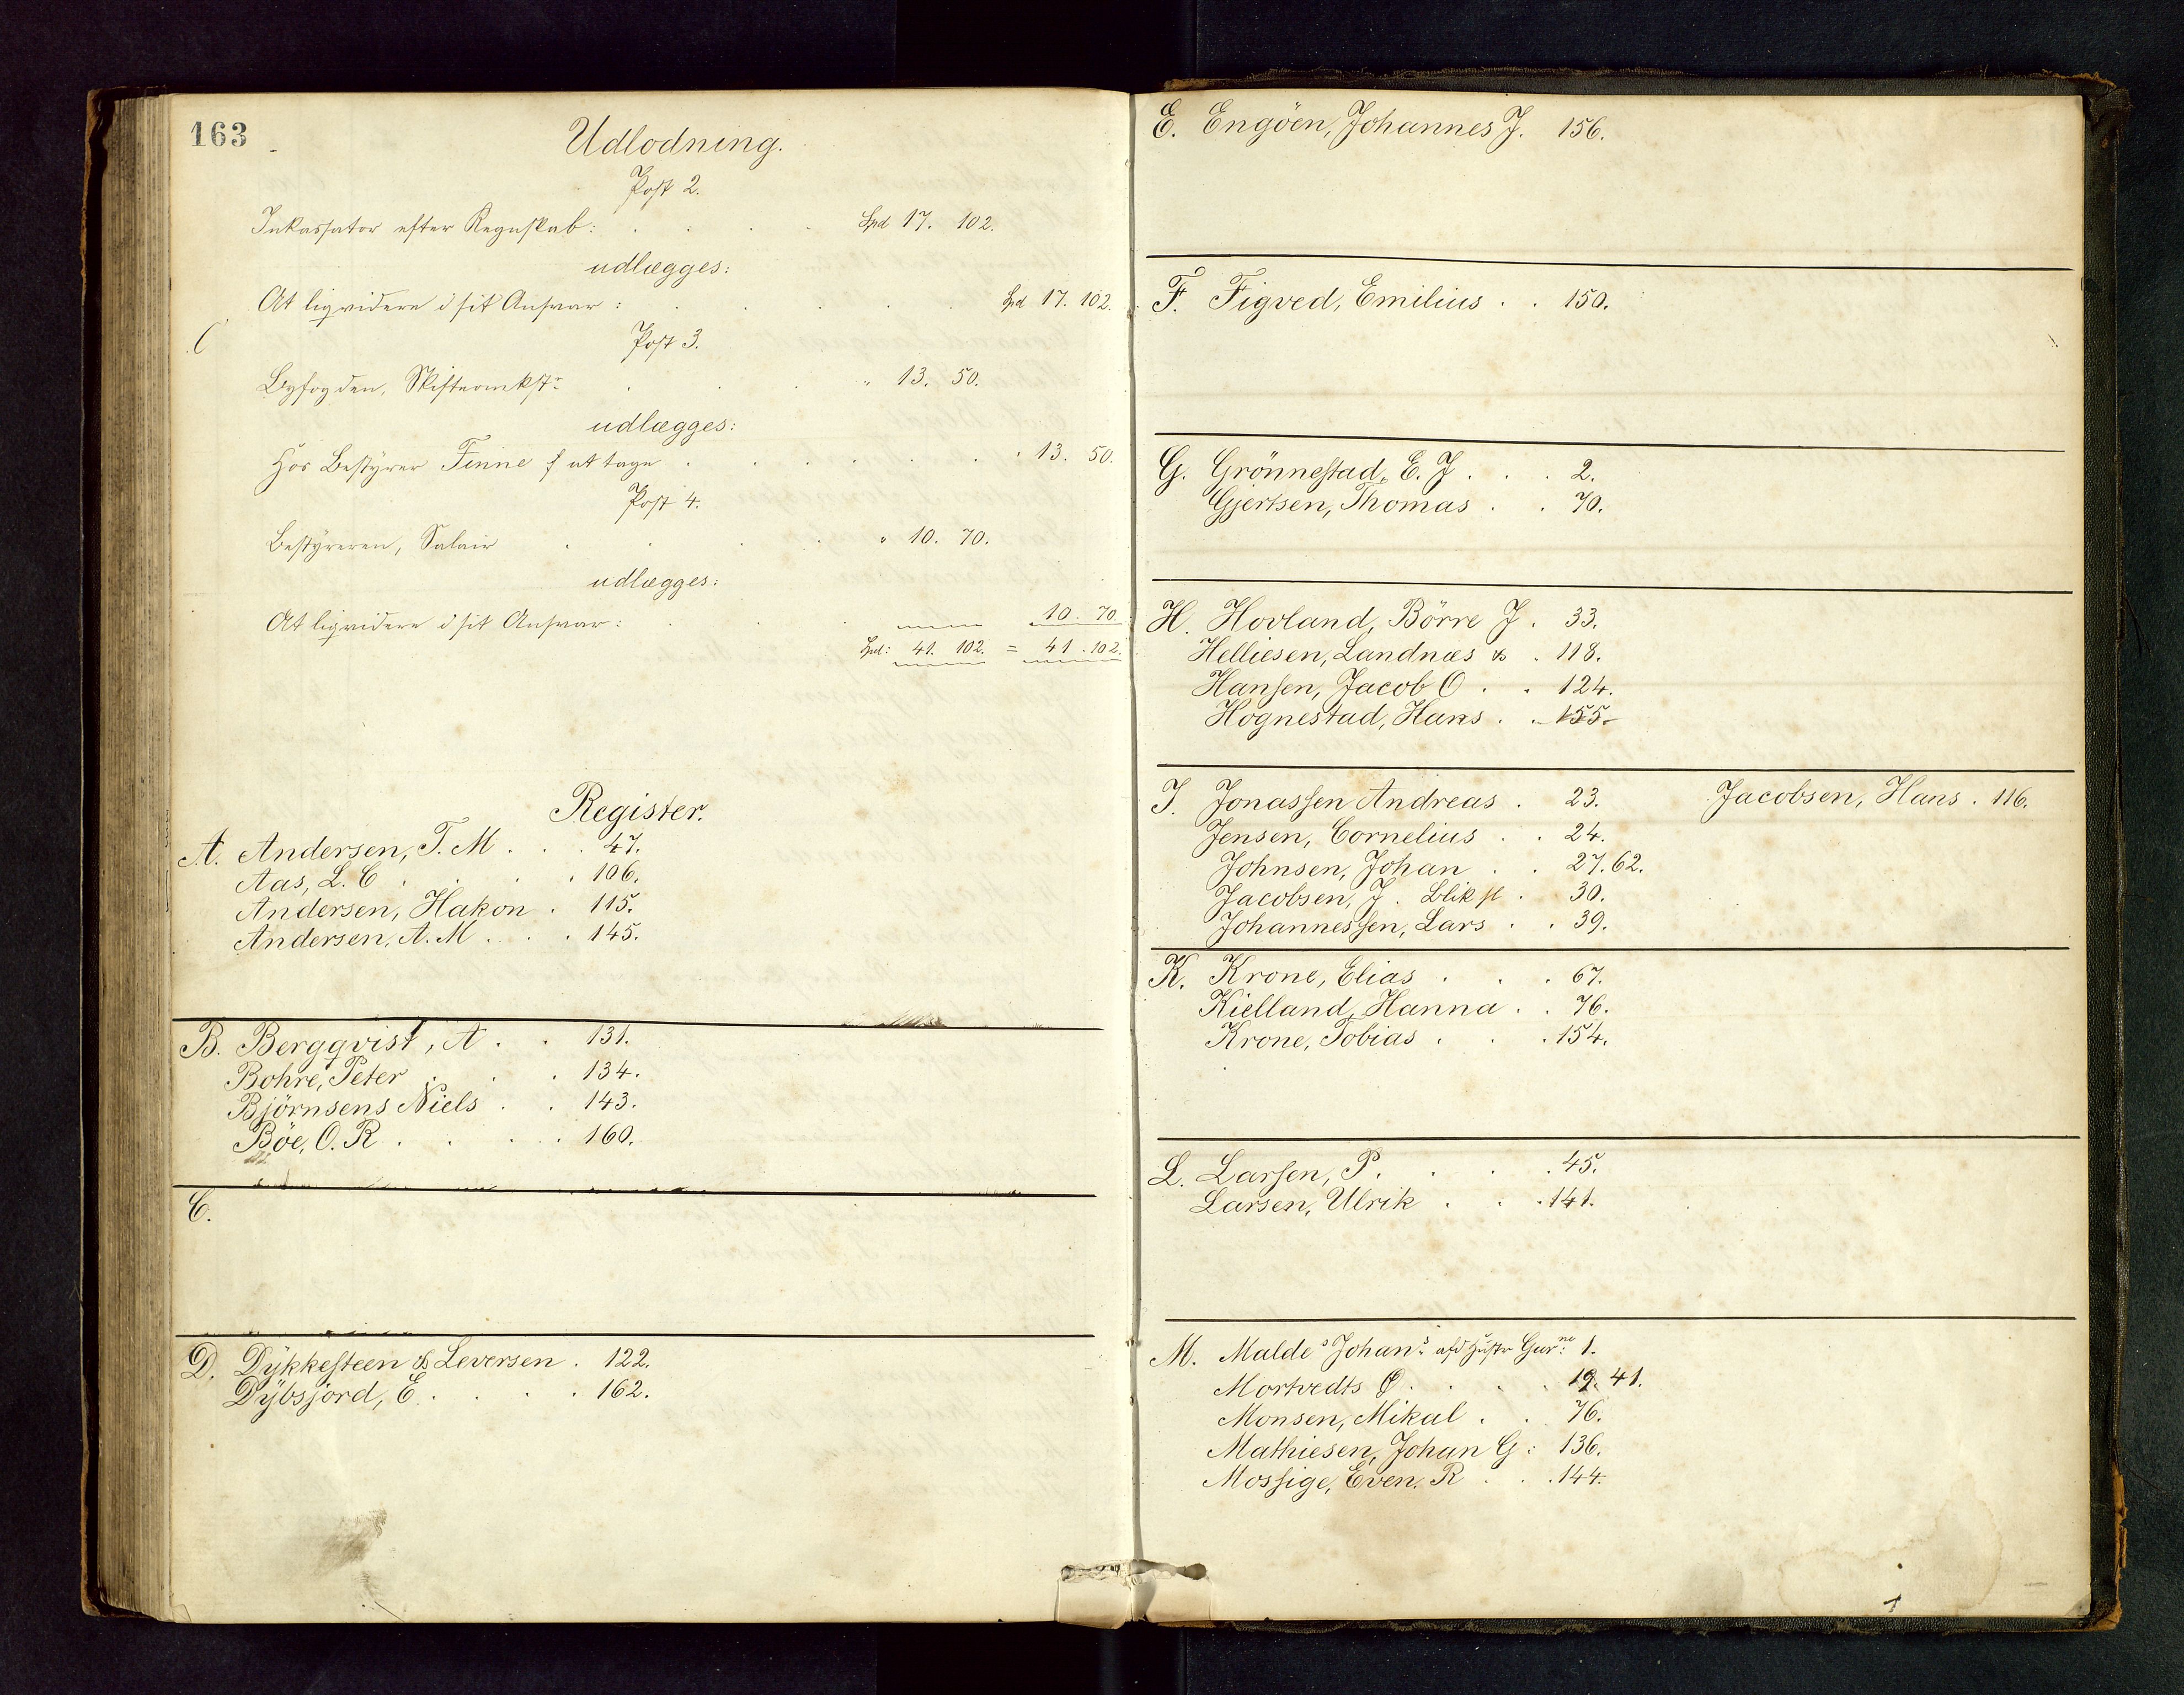 163
Udlodning.
Post 2.
Inkassator efter Regnskab: Spd 17. 102.
udlægges:
At liqvidere i sit Ansvar: Spd 17. 102.
Post 3.
Byfogden, Skifteomkstr " 13. 50.
udlægges:
Hos Bestyrer Finne at tage " 13. 50.
Post 4.
Bestyreren, Salair " 10. 70.
udlægges:
At liqvidere i sit Ansvar: 10. 70.
Spd: 41. 102. = 41. 102.
Register.
A. Andersen, T. M . . . 47.
Aas, L. C . . . 106.
Andersen, Hakon . 115.
Andersen, A. M . . . 145.
B. Bergqvist, A . . 131.
Bohre, Peter . . . 134.
Björnsens Niels . . 143.
Böe, O. R . . . . 160.
C.
D. Dykkesteen & Leversen . 122.
Dybsjord, E . . . . 162.
E. Engöen, Johannes J. 156.
F. Figved, Emilius . . 150.
G. Grönnestad, E. J . . . 2.
Gjertsen, Thomas . . 70.
H. Hovland, Börre J. 33.
Helliesen, Landnæs & . 118.
Hansen, Jacob O . . 124.
Hognestad, Hans . . 155.
J. Jonassen Andreas . 23. Jacobsen, Hans . 116.
Jensen, Cornelius . . 24.
Johnsen, Johan . . 27. 62.
Jacobsen, J. Bliksl . 30.
Johannessen, Lars . . 39.
K. Krone, Elias . . . 67.
Kielland, Hanna . . 76.
Krone, Tobias . . . 154.
L. Larsen, P. . . . 45.
Larsen, Ulrik . . . 141.
M. Malde Johans afd Hustr 1.
Mortvedts O . . . . 19. 41.
Monsen, Mikal . . 76.
Mathiesen, Johan G: 136.
Mossige, Even. R . . 144.